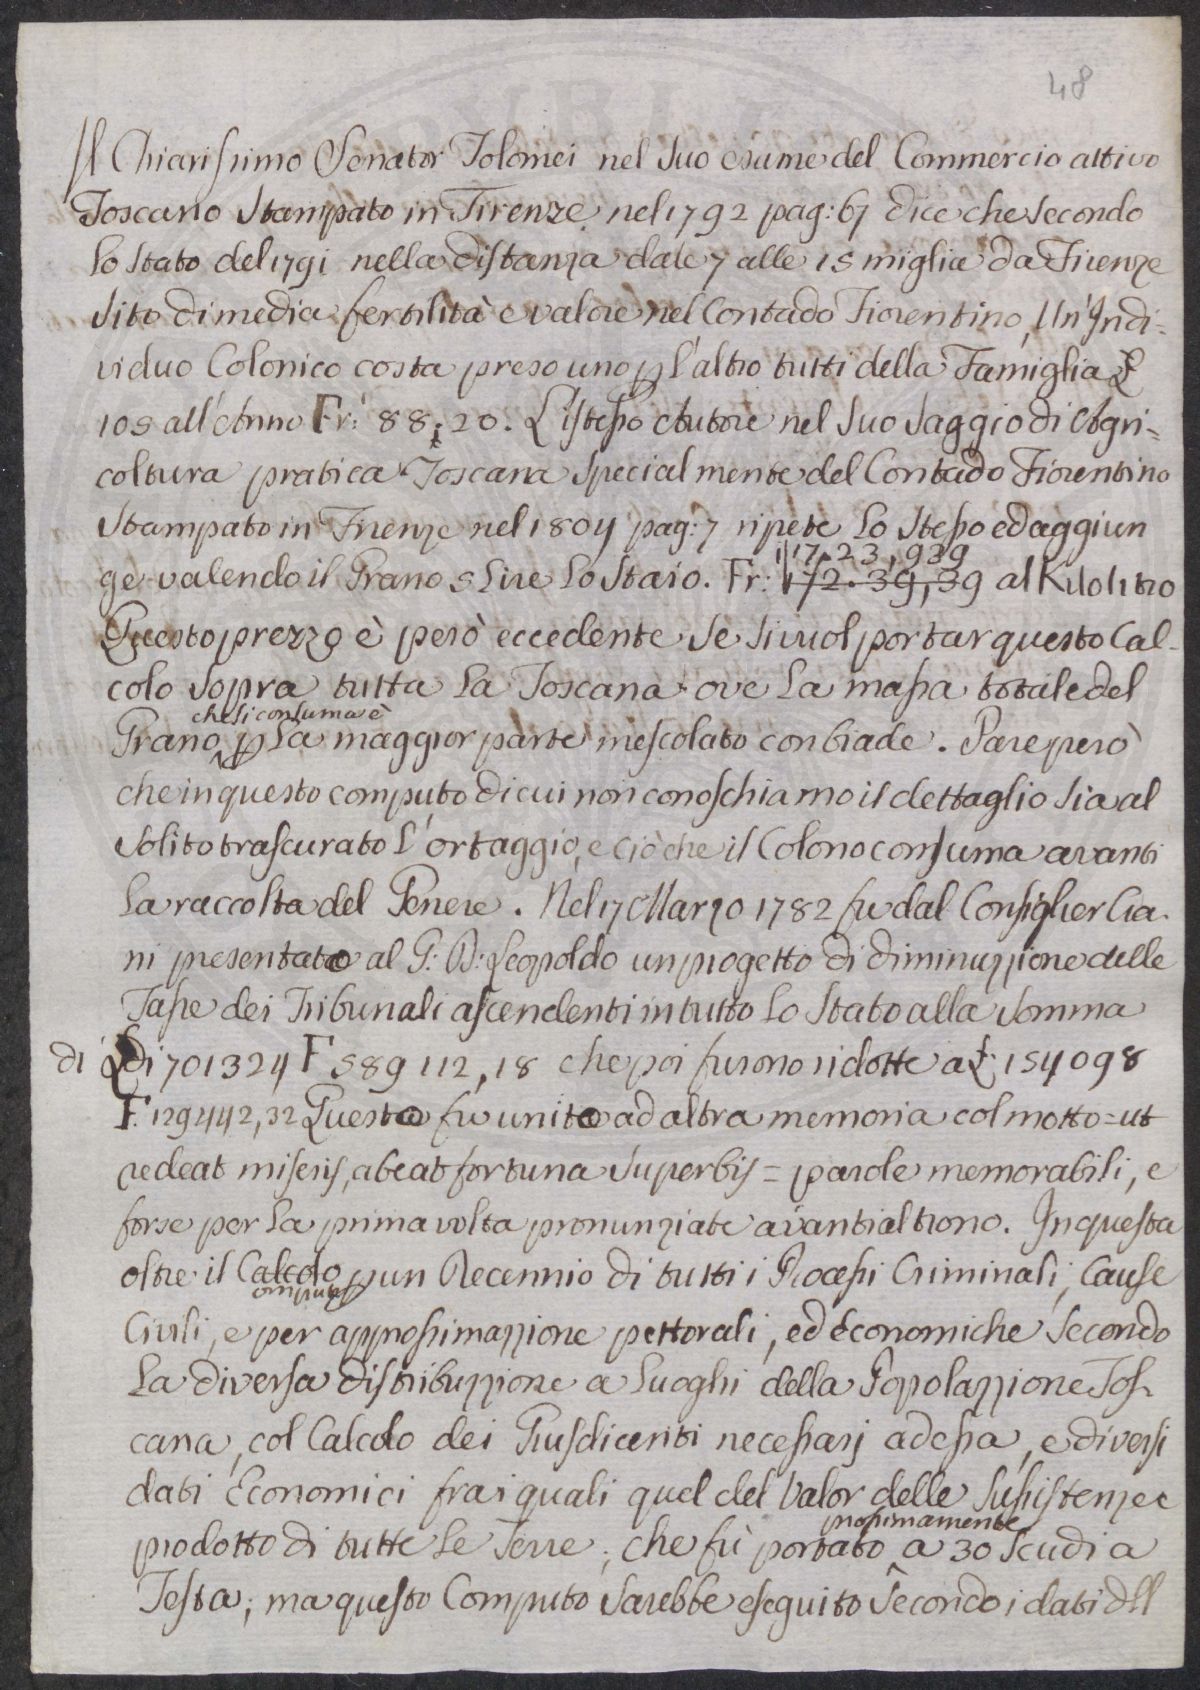 48
Il Chiarissimo Senator Tolomei nel suo esame del Commercio attivo
Toscano stampato in Firenze nel 1792 pag: 67 dice che secondo
lo stato del 1791 nella distanza dale 7 alle 15 miglia da Firenze
sito di media fertilità e valore nel Contado Fiorentino, Un' Indi=
viduo Colonico costa preso uno p l'altro tutti della Famiglia £
105 all'Anno Fr: 88.20. L'istesso Autore nel suo saggio di Agri=
coltura pratica Toscana specialmente del Contado Fiorentino
stampato in Firenze nel 1804 pag: 7 ripete lo stesso ed aggiun
117.23,939
ge valendo il Grano 5 Lire lo staio. Fr: 172.39,39 al Kilolitro
Questo prezzo è però eccedente se si vuol portar questo Cal-
colo sopra tutta la Toscana ove la massa totale del
che si consuma è
Grano p la maggior parte mescolato con biade. Pare però
che in questo computo di cui non conoschiamo il dettaglio sia al
solito trascurato l'ortaggio, e ciò che il Colono consuma avanti
la raccolta del Genere. Nel 17 Marzo 1782 fu dal Consiglier Gia.
ni presentato al G: D: Leopoldo un progetto di diminuzzione delle
Tasse dei Tribunali ascendenti in tutto lo stato alla somma
di £ di 701324 F 589 112,18 che poi furono ridotte a £ 154098
F. 129442,32 Questo fu unito ad altra memoria col motto = ut
redeat miseris, abeat fortuna superbis = parole memorabili, e
forse per la prima volta pronunziate avanti al trono. In questa
oltre il Calcolo p un Decennio di tutti i Processi Criminali, Cause
computo
Civili, e per approssimazzione pettorali, ed economiche secondo
la diversa distribuzzione a luoghi della Popolazzione Tos-
cana, col Calcolo dei Giusdicenti necessarj ad essa, e diversi
dati Economici frai quali quel del Valor delle sussistenze e
prossimamente
prodotto di tutte le Terre; che fù portato a 30 scudi a
Testa; ma questo Computo sarebbe eseguito secondo i dati dll